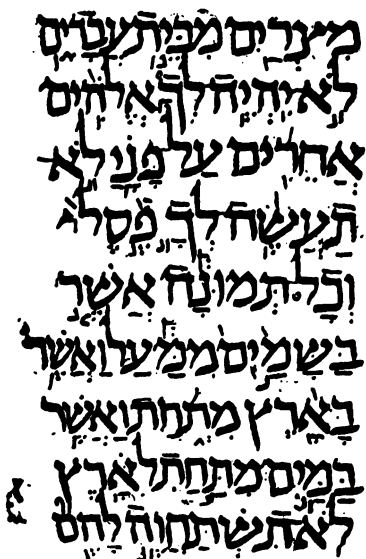 מצרים מבית עבדים
לא יהיה לך אלהים
אחרים על פני לא
תעשה לך פסל
וכל תמונה אשר
בשמים ממעל ואשר
בארץ מתחת ואשר
במים מתחת לארץ
לא תשתחוה להם